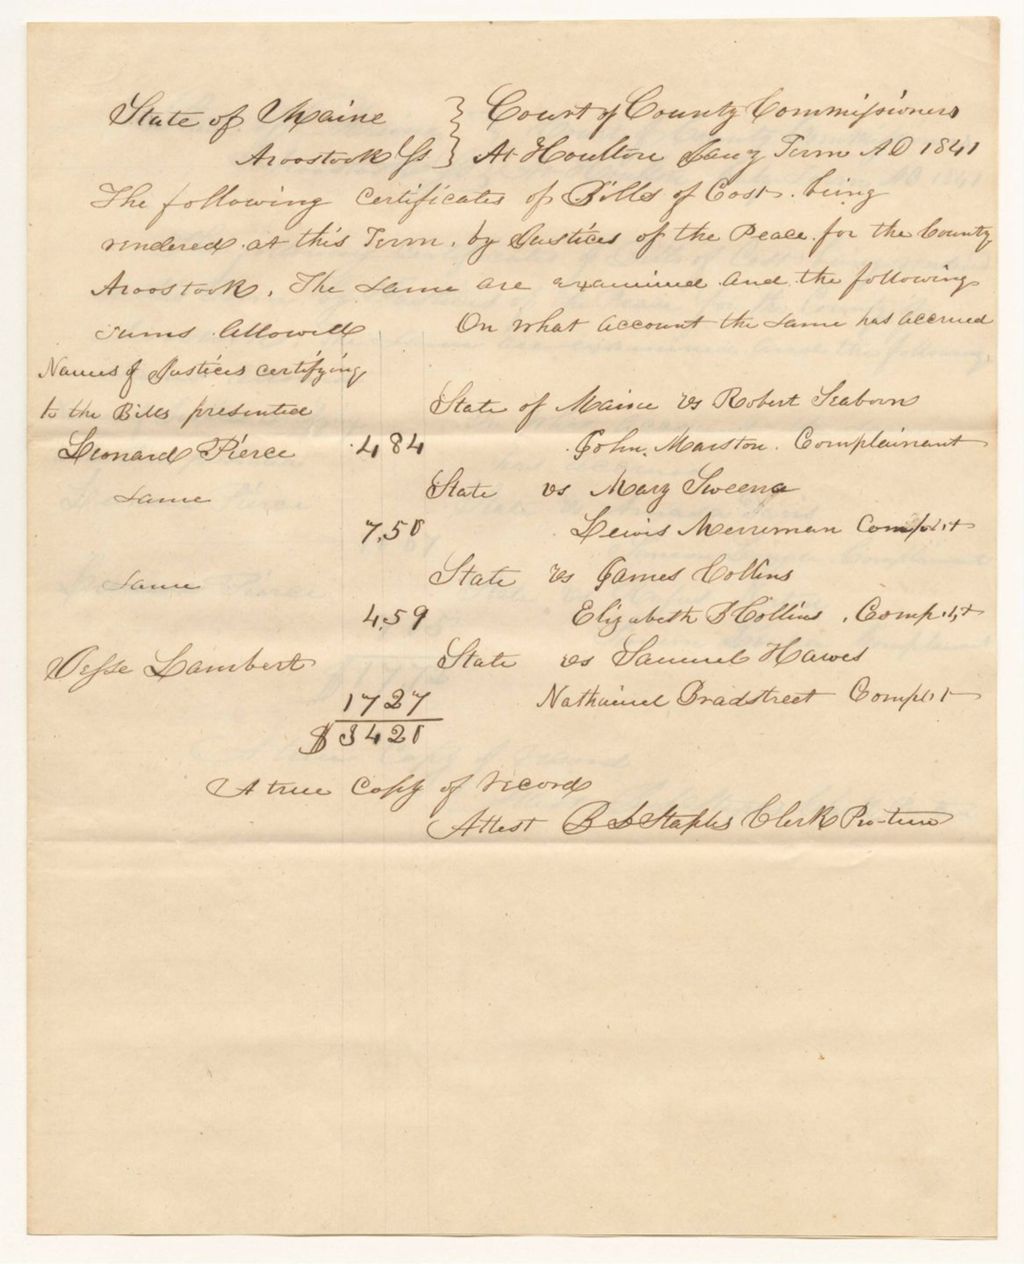 State of Maine } Court of County Commissioners
Aroostook Ss } At Houlton Jany Term AD 1841
The following certificates of Bills of Cost being
rendered at this Term, by Justices of the Peace for the County
Aroostook, The same are examined and the following
sums allowed On what account the same has accrued
Names of Justices certifying
to the Bills presented State of Maine vs Robert Seaborn
Leonard Pierce 4 84 John Marston Complainant
Same State vs Mary Sweena
7.50 Lewis Merriman Complt
Same State vs James Collins
4.59 Elizabeth B Collins, Complt
Jesse Lambert State vs Samuel Hawes
17 27 Nathaniel Bradstreet Complt
$34 20
A true Copy of record
Attest B L Staples Clerk Pro-tem